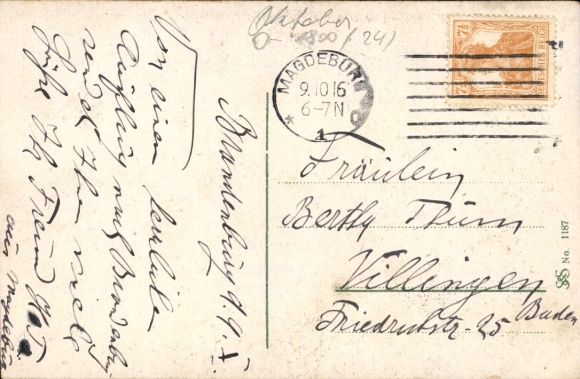 Oktober
1800 (24)
MAGDEBURG
9.10.16
6-7N
* 1
7½
Brandenburg d. 9. X.
Von einem
Ausflug nach Brandenbg
sendet Ihnen viele
Grüße Ihr Freund
aus Magdeburg
Fräulein
Berthy Thum
Villingen
Baden
Friedrichstr. 25
SS No. 1187